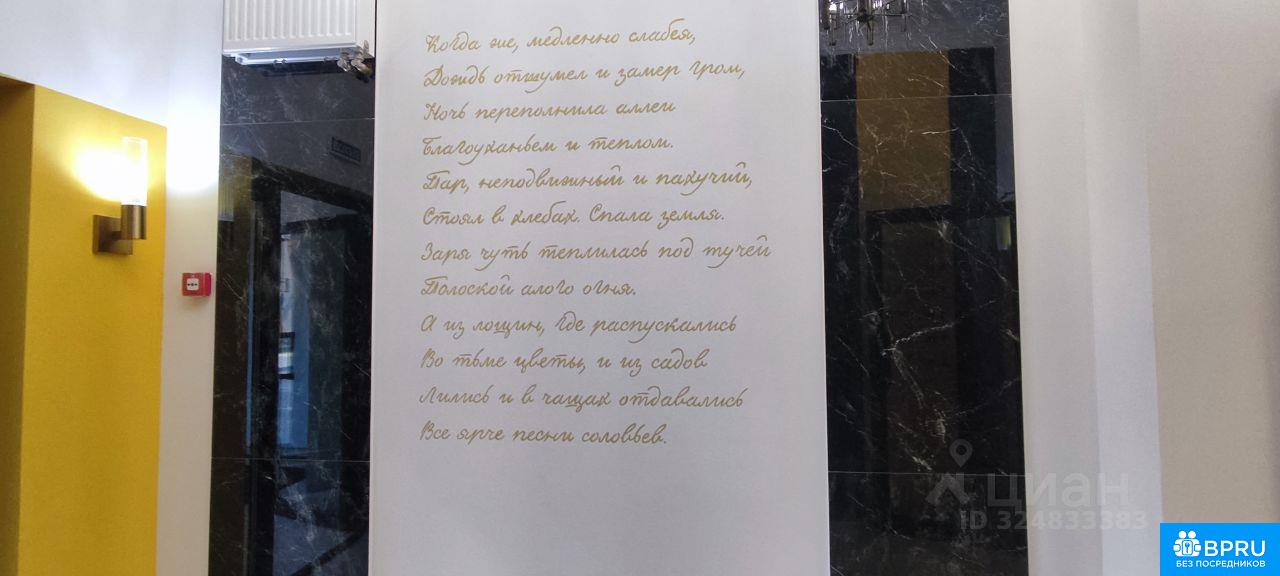 Когда же, медленно слабея,
Дождь отшумел и замер гром,
Ночь переполнила аллеи
Благоуханьем и теплом.
Пар, неподвижный и пахучий,
Стоял в хлебах. Спала земля.
Заря чуть теплилась под тучей
Полоской алого огня.
А из лощин, где распускались
Во тьме цветы, и из садов
Лились и в чащах отдавались
Все ярче песни соловьев.
циан
ID 324833383
BPRU
БЕЗ ПОСРЕДНИКОВ